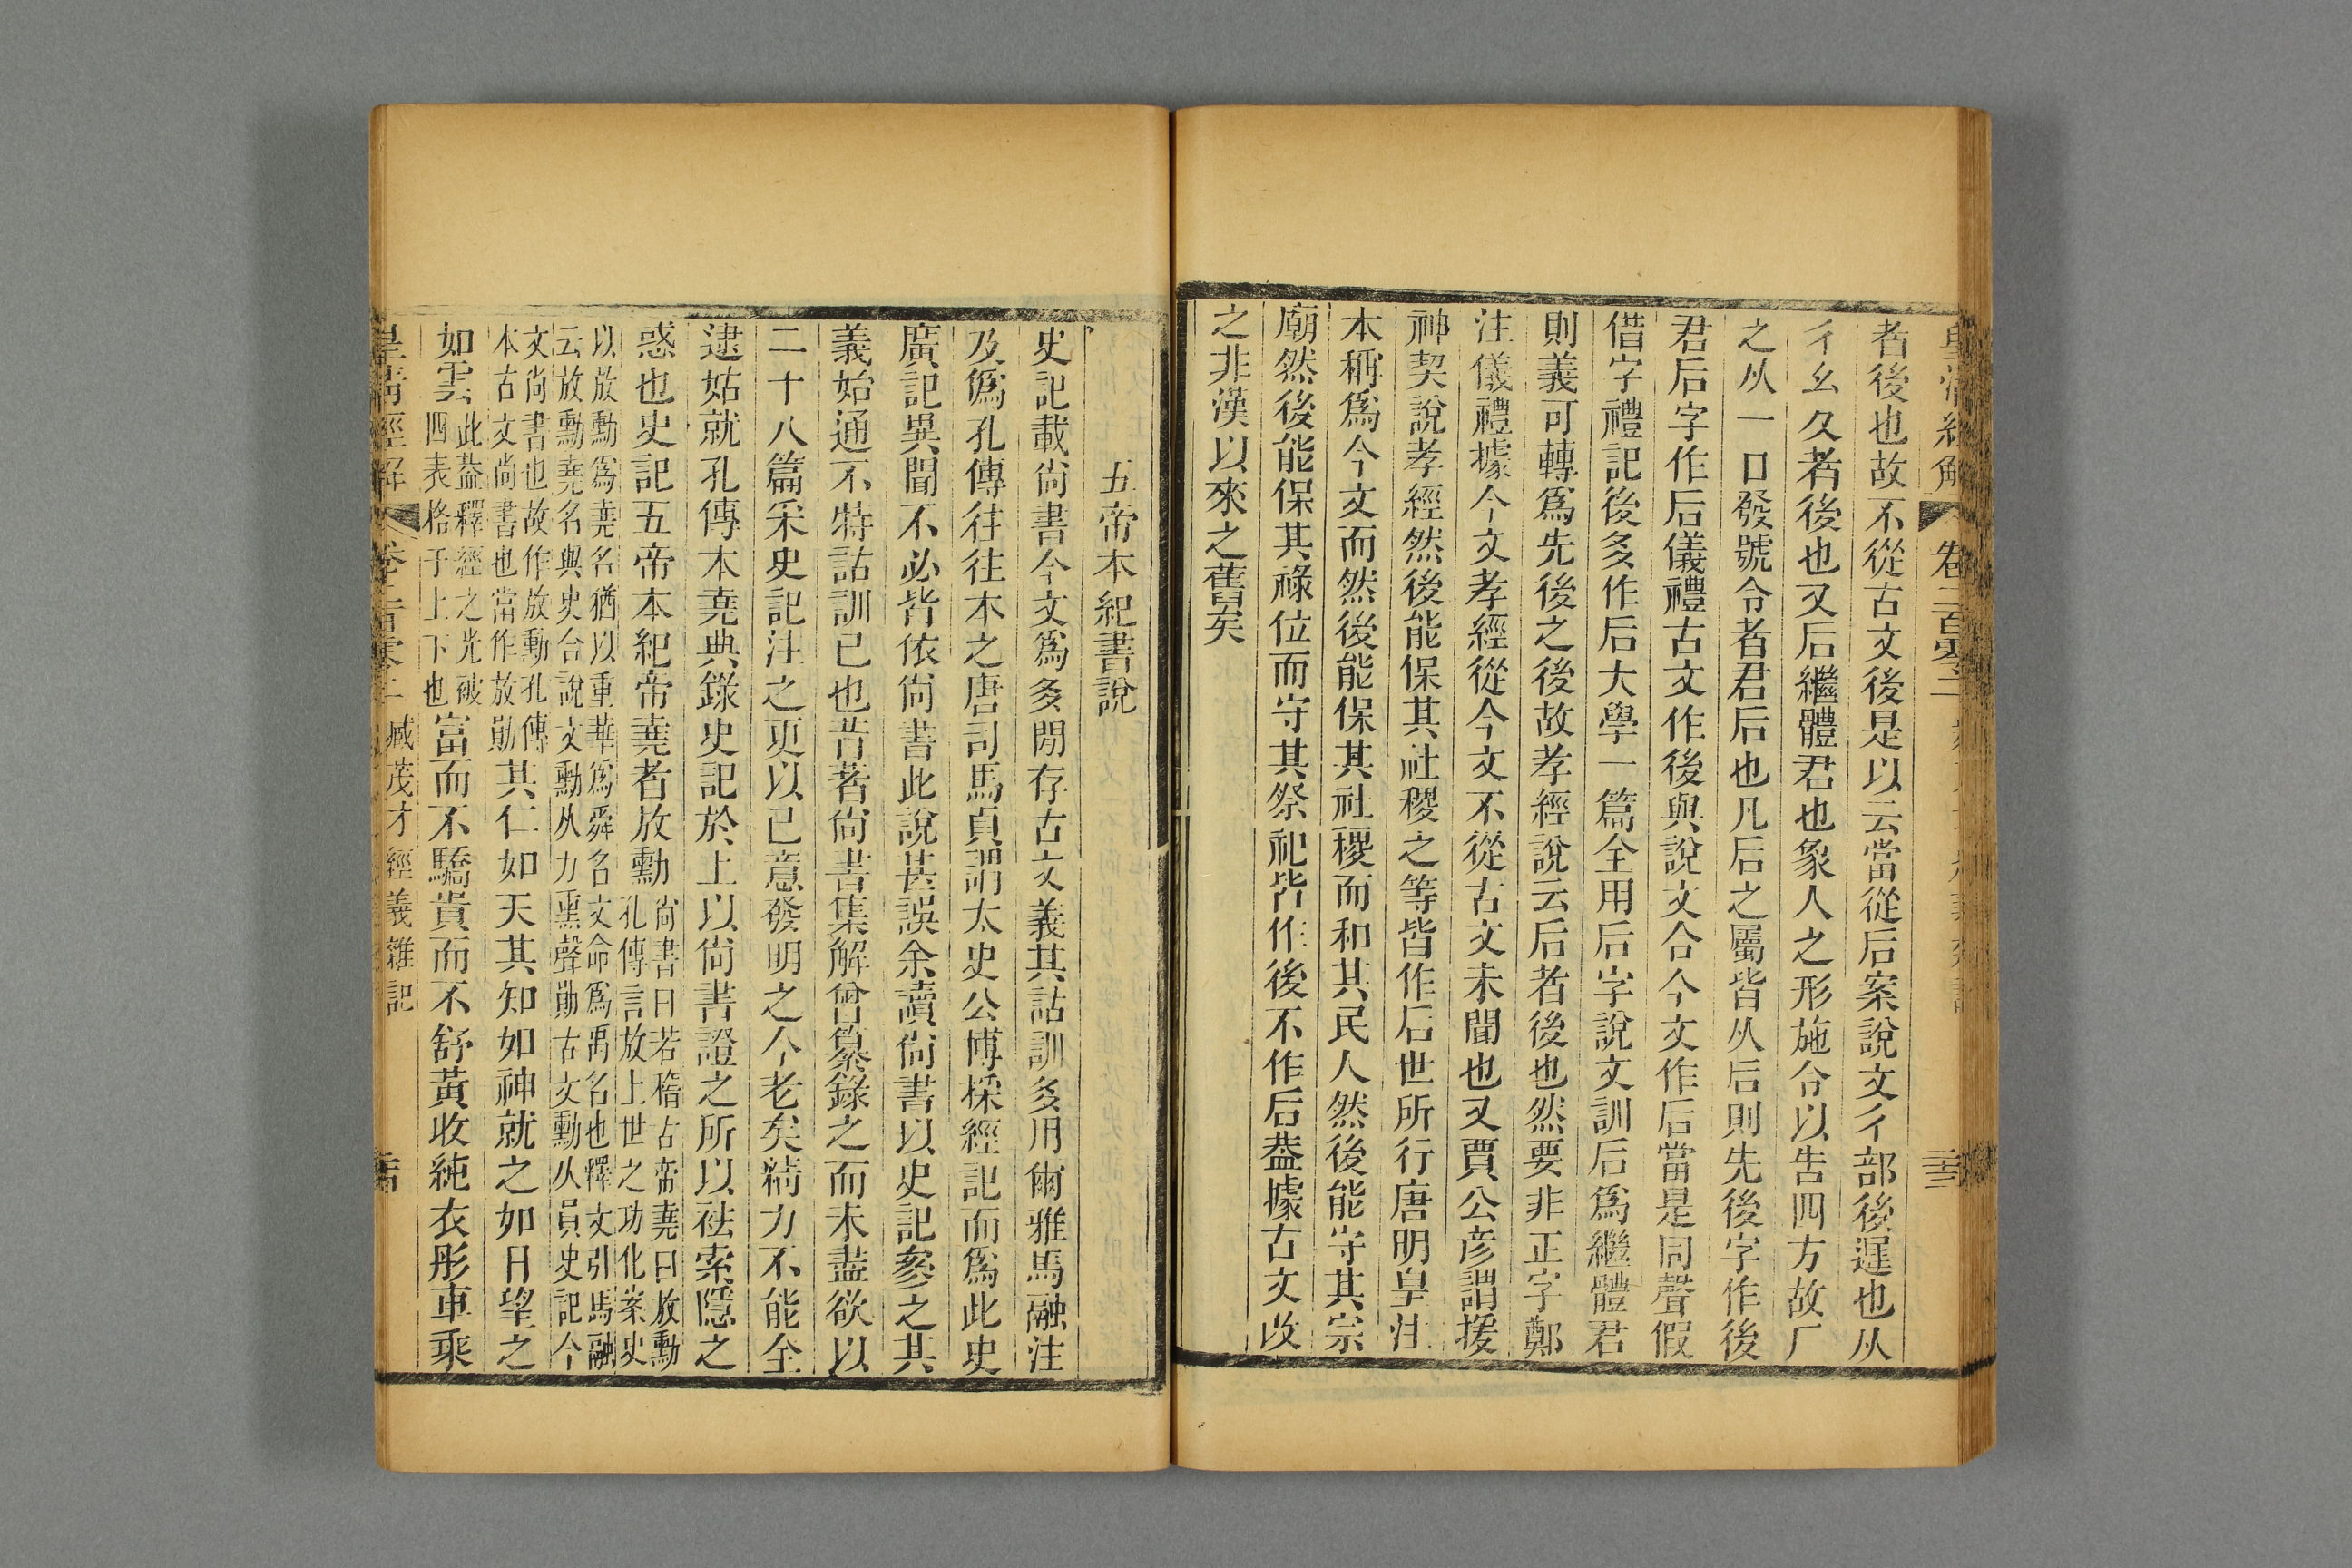 皇清經解 卷二百零二
者後也故不從古文後是以云當從后案說文彳部後遲也从
彳幺夂者後也又后繼體君也象人之形施令以告四方故厂
之从一口發號令者君后也凡后之屬皆从后則先後字作後
君后字作后儀禮古文作後與說文合今文作后當是同聲假
借字禮記後多作后大學一篇全用后字說文訓后爲繼體君
則義可轉爲先後之後故孝經說云后者後也然要非正字鄭
注儀禮據今文孝經從今文不從古文未聞也又賈公彥謂援
神契說孝經然後能保其社稷之等皆作后世所行唐明皇注
本稱爲今文而然後能保其社稷而和其民人然後能守其宗
廟然後能保其祿位而守其祭祀皆作後不作后葢據古文改
之非漢以來之舊矣
五帝本紀書說
史記載尙書今文爲多間存古文義其詁訓多用爾雅馬融注
及僞孔傳往往本之唐司馬貞謂太史公博採經記而爲此史
廣記異聞不必皆依尙書此說甚誤余讀尙書以史記參之其
義始通不特詁訓已也昔著尙書集解曾纂錄之而未盡欲以
二十八篇采史記注之更以己意發明之今老矣精力不能全
逮姑就孔傳本堯典錄史記於上以尙書證之所以祛索隱之
惑也史記五帝本紀帝堯者放勳
尙書曰若稽古帝堯曰放勳
孔傳言放上世之功化案史
以放勳爲堯名猶以重華爲舜名文命爲禹名也釋文引馬融
云放勳堯名與史合說文勳从力熏聲勛古文勳从員史記今
文尙書也故作放勳孔傳
本古文尙書也當作放勛
其仁如天其知如神就之如日望之
如雲
此葢釋經之光被
四表格于上下也
富而不驕貴而不舒黃收純衣彤車乘
皇清經解 卷二百零二 臧茂才經義雜記